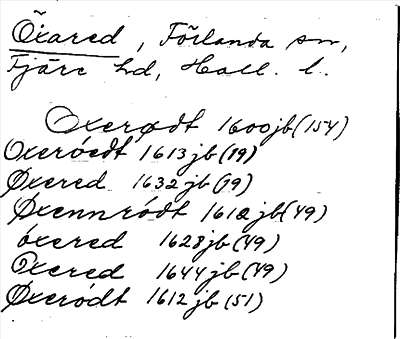 Öxared, Förlanda sn,
Fjäre hd, Hall. l.
Oxerødt 1600 jb (154)
Oxeröedt 1613 jb (19)
Øxered 1632 jb (19)
Øxennrödt 1610 jb (49)
öxered 1628 jb (49)
Öxered 1644 jb (49)
Øxerödt 1612 jb (51)